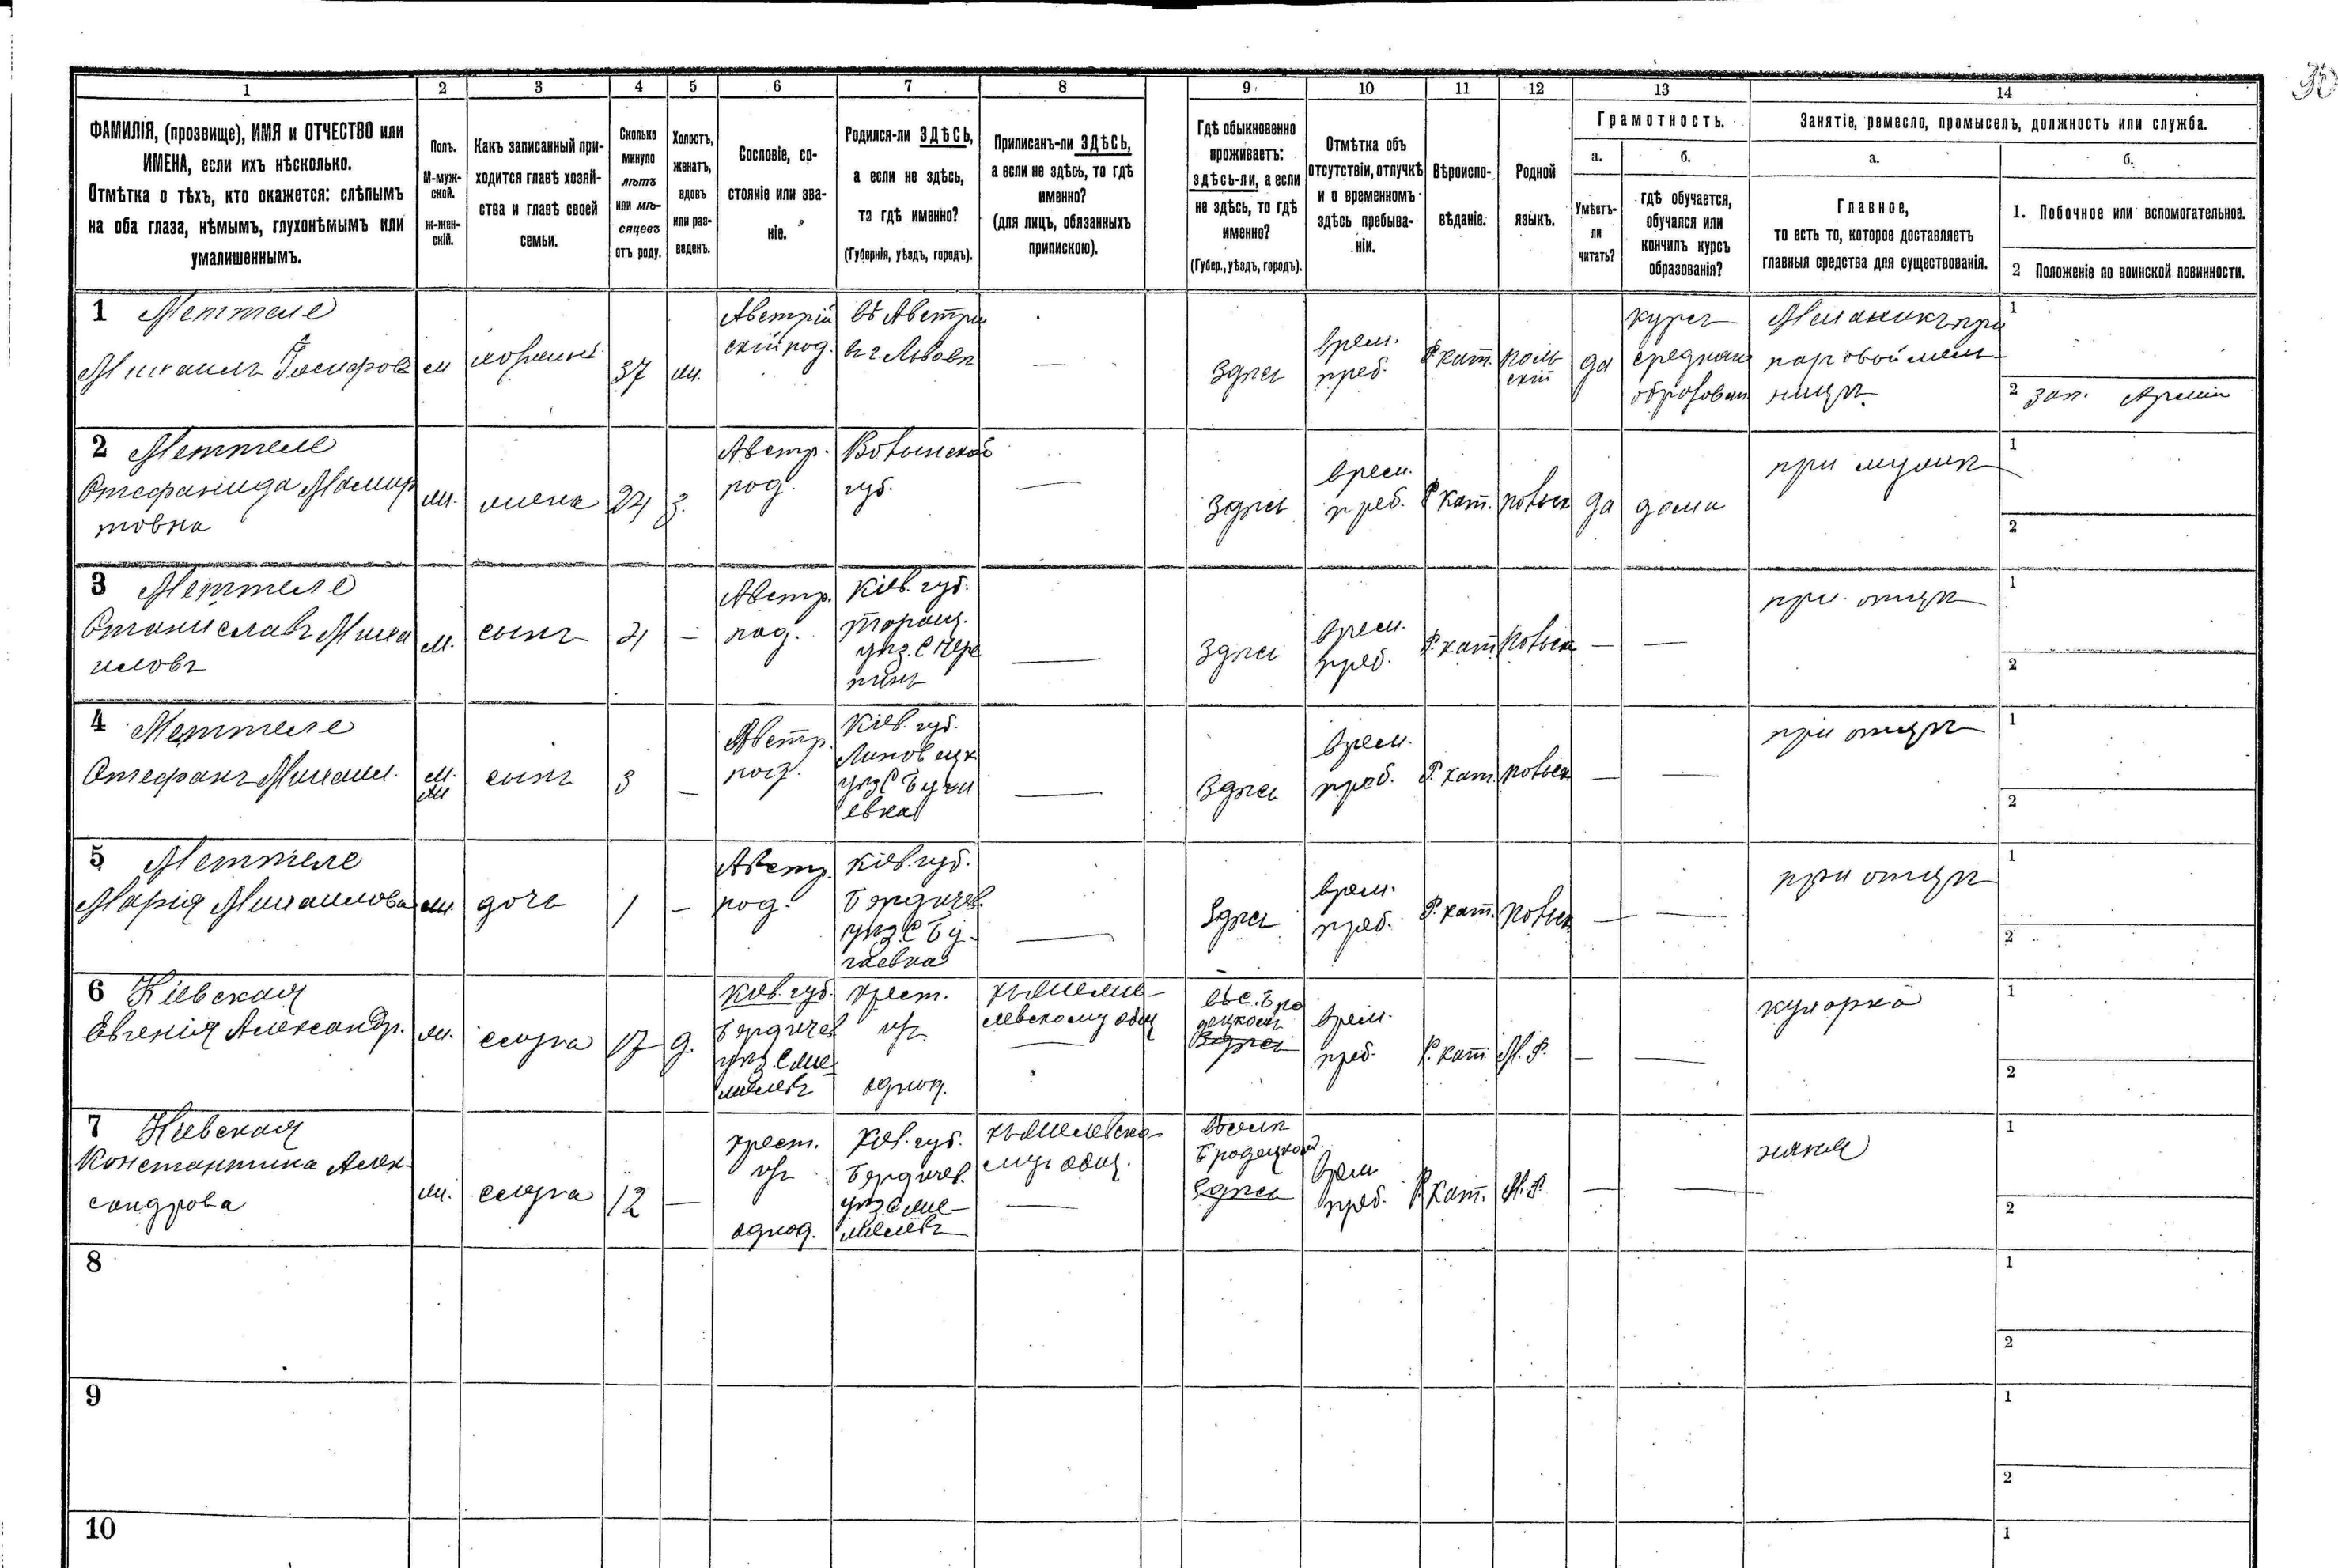 30
1 2 3 4 5 6 7 8 9 10 11 12 13 14
ФАМИЛІЯ, (прозвище), ИМЯ и ОТЧЕСТВО или
ИМЕНА, если ихъ нѣсколько.
Отмѣтка о тѣхъ, кто окажется: слѣпымъ
на оба глаза, нѣмымъ, глухонѣмымъ или
умалишеннымъ.
Полъ.
М-муж-
ской.
ж-жен-
скій.
Какъ записанный при-
ходится главѣ хозяй-
ства и главѣ своей
семьи.
Сколько
минуло
лѣтъ
или мѣ-
сяцевъ
отъ роду.
Холостъ,
женатъ,
вдовъ
или раз-
веденъ.
Сословіе, со-
стояніе или зва-
ніе.
Родился-ли ЗДѢСЬ,
а если не здѣсь,
то гдѣ именно?
(Губернія, уѣздъ, городъ).
Приписанъ-ли ЗДѢСЬ,
а если не здѣсь, то гдѣ
именно?
(для лицъ, обязанныхъ
припискою).
Гдѣ обыкновенно
проживаетъ:
здѣсь-ли, а если
не здѣсь, то гдѣ
именно?
(Губер., уѣздъ, городъ).
Отмѣтка объ
отсутствіи, отлучкѣ
и о временномъ
здѣсь пребыва-
ніи.
Вѣроиспо-
вѣданіе.
Родной
языкъ.
Грамотность.
а.
Умѣетъ-
ли
читать?
б.
гдѣ обучается,
обучался или
кончилъ курсъ
образованія?
Занятіе, ремесло, промыселъ, должность или служба.
а.
Главное,
то есть то, которое доставляетъ
главныя средства для существованія.
б.
1. Побочное или вспомогательное.
2 Положеніе по воинской повинности.
1 Меттеле
Михаилъ Іосифовъ
м
хозяинъ
37
ж.
Австрій
скій под.
въ Австріи
въ г. Львовѣ
—
Здѣсь
врем.
преб.
Р кат.
поль
скій
да
курсъ
среднаго
образован
Механикъ при
паровой мель-
ницѣ
1
2 зап. Арміи
2 Меттеле
Стефанида
товна
ж.
жена
24
з.
Австр.
под.
Волынской
губ.
—
Здѣсь
врем.
преб.
Р кат.
польск
да
дома
при мужѣ
1
2
3 Меттеле
Станиславъ Миха
иловъ
м.
сынъ
4
—
Австр.
под.
Кіев. губ.
Таращ.
уѣз. С Чере
пинъ
—
Здѣсь
врем.
преб.
Р. кат
польск
—
—
при отцѣ
1
2
4 Меттеле
Стефанъ Михаил.
м.
сынъ
3
—
Австр.
под.
Кіев. губ.
Липовецк
уѣз С
евка
—
Здѣсь
врем.
преб.
Р. кат.
польск
—
—
при отцѣ
1
2
5 Меттеле
Марія Михаилова
ж.
дочь
1
—
Австр.
под.
Кіев. губ.
Бердичев.
уѣз. С Бу-
гаевка
—
Здѣсь
врем.
преб.
Р. кат.
польск
—
—
при отцѣ
1
2
6 Кіевская
Евгенія Александр.
ж.
слуга
17
д.
Кіев. губ.
Бердичев
уѣз. С
крест.
изъ
однод.
левскому общ
—
въ с. Бро
децкомъ
Здѣсь
врем.
преб.
Р. кат
М. Р.
—
—
кухарка
1
2
7 Кіевская
Константина Алек-
сандрова
ж.
слуга
12
—
крест.
изъ
однод.
Кіев. губ.
Бердичев.
уѣз С
му общ.
—
Бродецкомъ
Здѣсь
врем
преб.
Р. кат.
М. Р.
—
—
няня
1
2
8
1
2
9
1
2
10
1